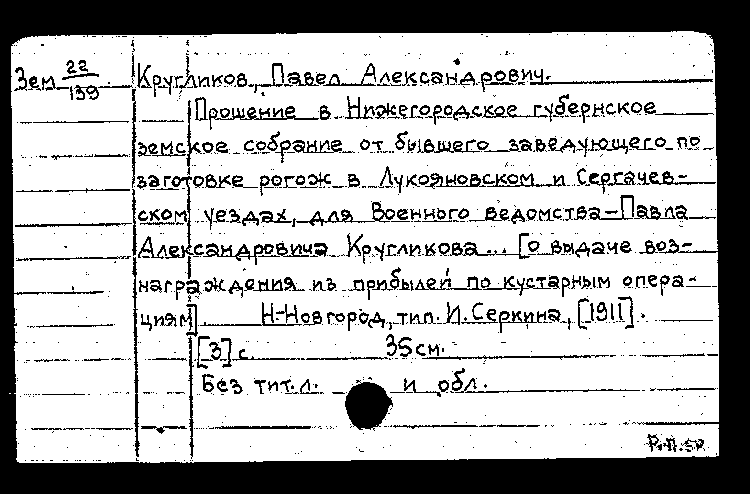 Зем 22/139. Кругликов, Павел Александрович.
Прошение в Нижегородское губернское
земское собрание от бывшего заведующего по
заготовке рогож в Лукояновском и Сергачев-
ском уездах, для Военного ведомства-Павла
Александровича Кругликова... [о выдаче воз-
награждения из прибылей по кустарным опера-
циям]. Н-Новгород, тип. И. Серкина, [1911].
[3] с. 35см.
Без тит. л. и обл.